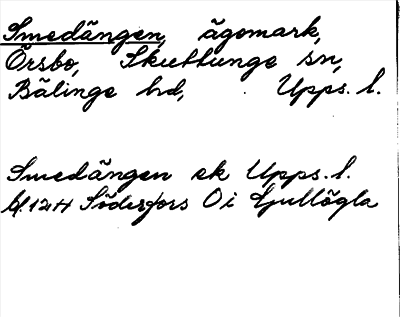 Smedängen, ägomark,
Örsbo, Skuttunge sn,
Bälinge hd, Upps. l.
Smedängen ek Upps. l.
bl. 12H Söderfors O i Gullögla